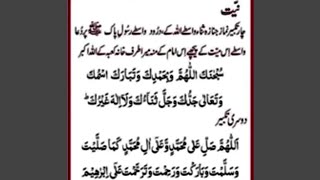 نیت
چار تکبیر نماز جنازہ ثناء واسطے اللہ کے درود واسطے رسول پاک ﷺ پر دُعا
واسطے اس میت کے پیچھے اس امام کے منہ میرا طرف خانہ کعبہ کے اللہ اکبر
سُبْحٰنَكَ اللّٰهُمَّ وَبِحَمْدِكَ وَتَبَارَكَ اسْمُكَ
وَتَعَالٰى جَدُّكَ وَجَلَّ ثَنَاءُكَ وَلَا اِلٰهَ غَيْرُكَ
دوسری تکبیر
اَللّٰهُمَّ صَلِّ عَلٰى مُحَمَّدٍ وَّعَلٰى اٰلِ مُحَمَّدٍ كَمَا صَلَّيْتَ
وَسَلَّمْتَ وَبَارَكْتَ وَرَحِمْتَ وَتَرَحَّمْتَ عَلٰى اِبْرٰهِيْمَ